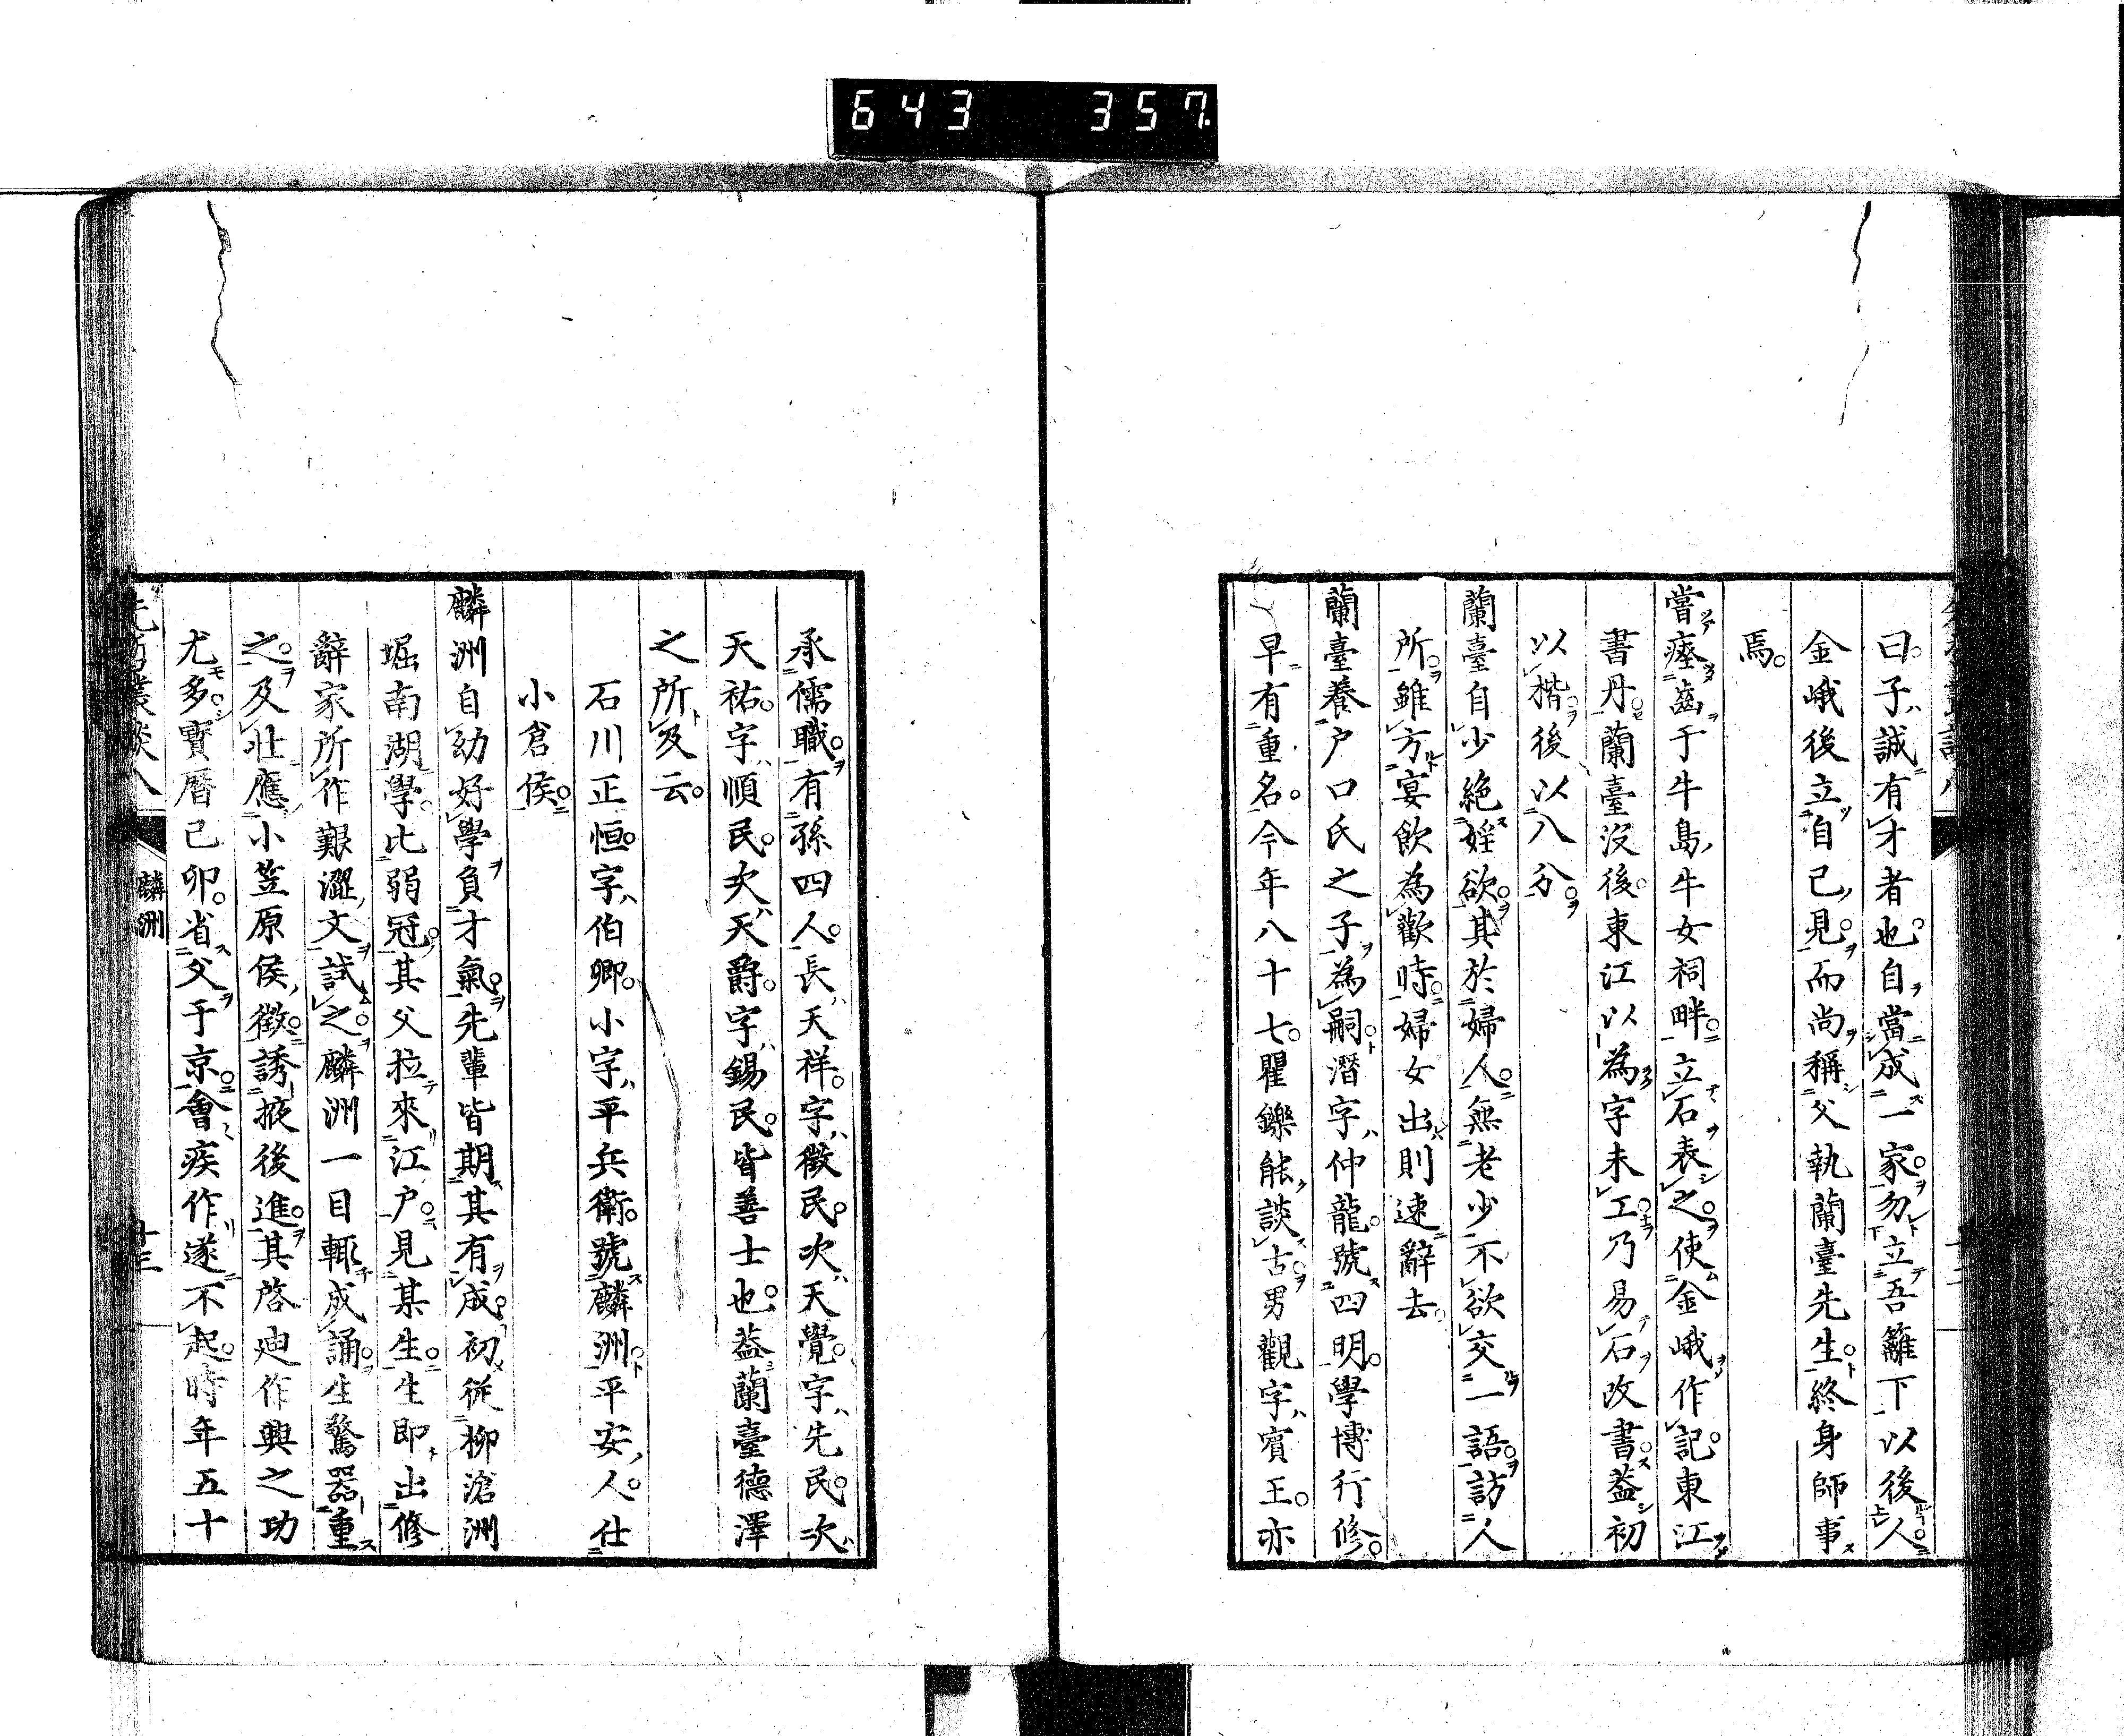 643 357
曰子誠有才者也自當成一家勿立吾籬下以後人
金峨後立自己見而尚稱父執蘭臺先生終身師事
焉
嘗瘞齒于牛島牛女祠畔立石表之使金峨作記東江
書丹蘭臺沒後東江以為字未工乃易石改書蓋初
以楷後以八分
蘭臺自少絕婬欲其於婦人無老少不欲交一語訪人
所雖方宴飲為歡時婦女出則速辭去
蘭臺養户口氏之子為嗣潛字仲龍號四明學博行修
早有重名今年八十七矍鑠能談古男觀字賓王亦
承儒職有孫四人長天祥字徵民次天覺字先民次
天祐字順民次天爵字錫民皆善士也蓋蘭臺德澤
之所及云
石川正恒字伯卿小字平兵衛號麟洲平安人仕
小倉侯
麟洲自幼好學負才氣先輩皆期其有成初從柳滄洲
堀南湖學比弱冠其父拉來江户見某生生即出修
辭家所作艱澀文試之麟洲一目輒成誦生驚器重
之及壯應小笠原侯徵誘掖後進其啓迪作興之功
尤多寶曆己卯省父于京會疾作遂不起時年五十
麟洲
十三